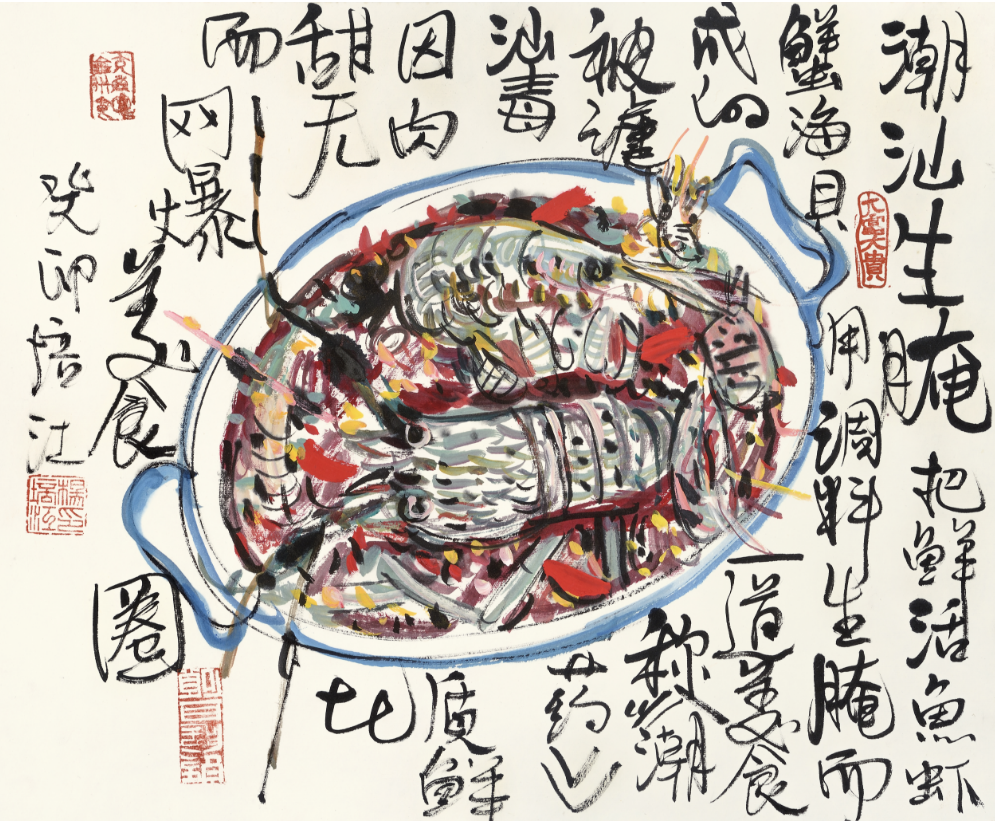 潮汕生腌
把鲜活魚虾
蟹海贝
用调料生腌而
成的
一道美食
被谑
称潮
汕毒
药
因肉
质鲜
甜无
比
而
网爆
美食
圈
癸卯培江
楊培江印